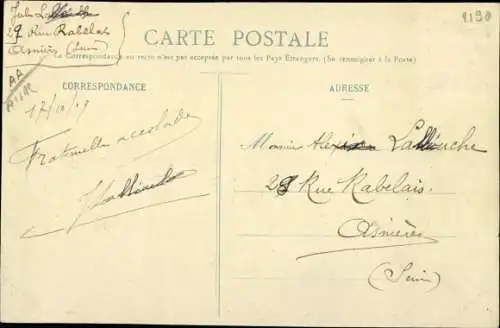 Jules
29 Rue Rabelais
Asnières (Seine)
AA
1190
CARTE POSTALE
La Correspondance au recto n'est pas acceptée par tous les Pays Étrangers. (Se renseigner à la Poste)
CORRESPONDANCE
ADRESSE
17/10/09
Fraternelle accolade
Monsieur Lallouche
29 Rue Rabelais.
Asnières
(Seine)